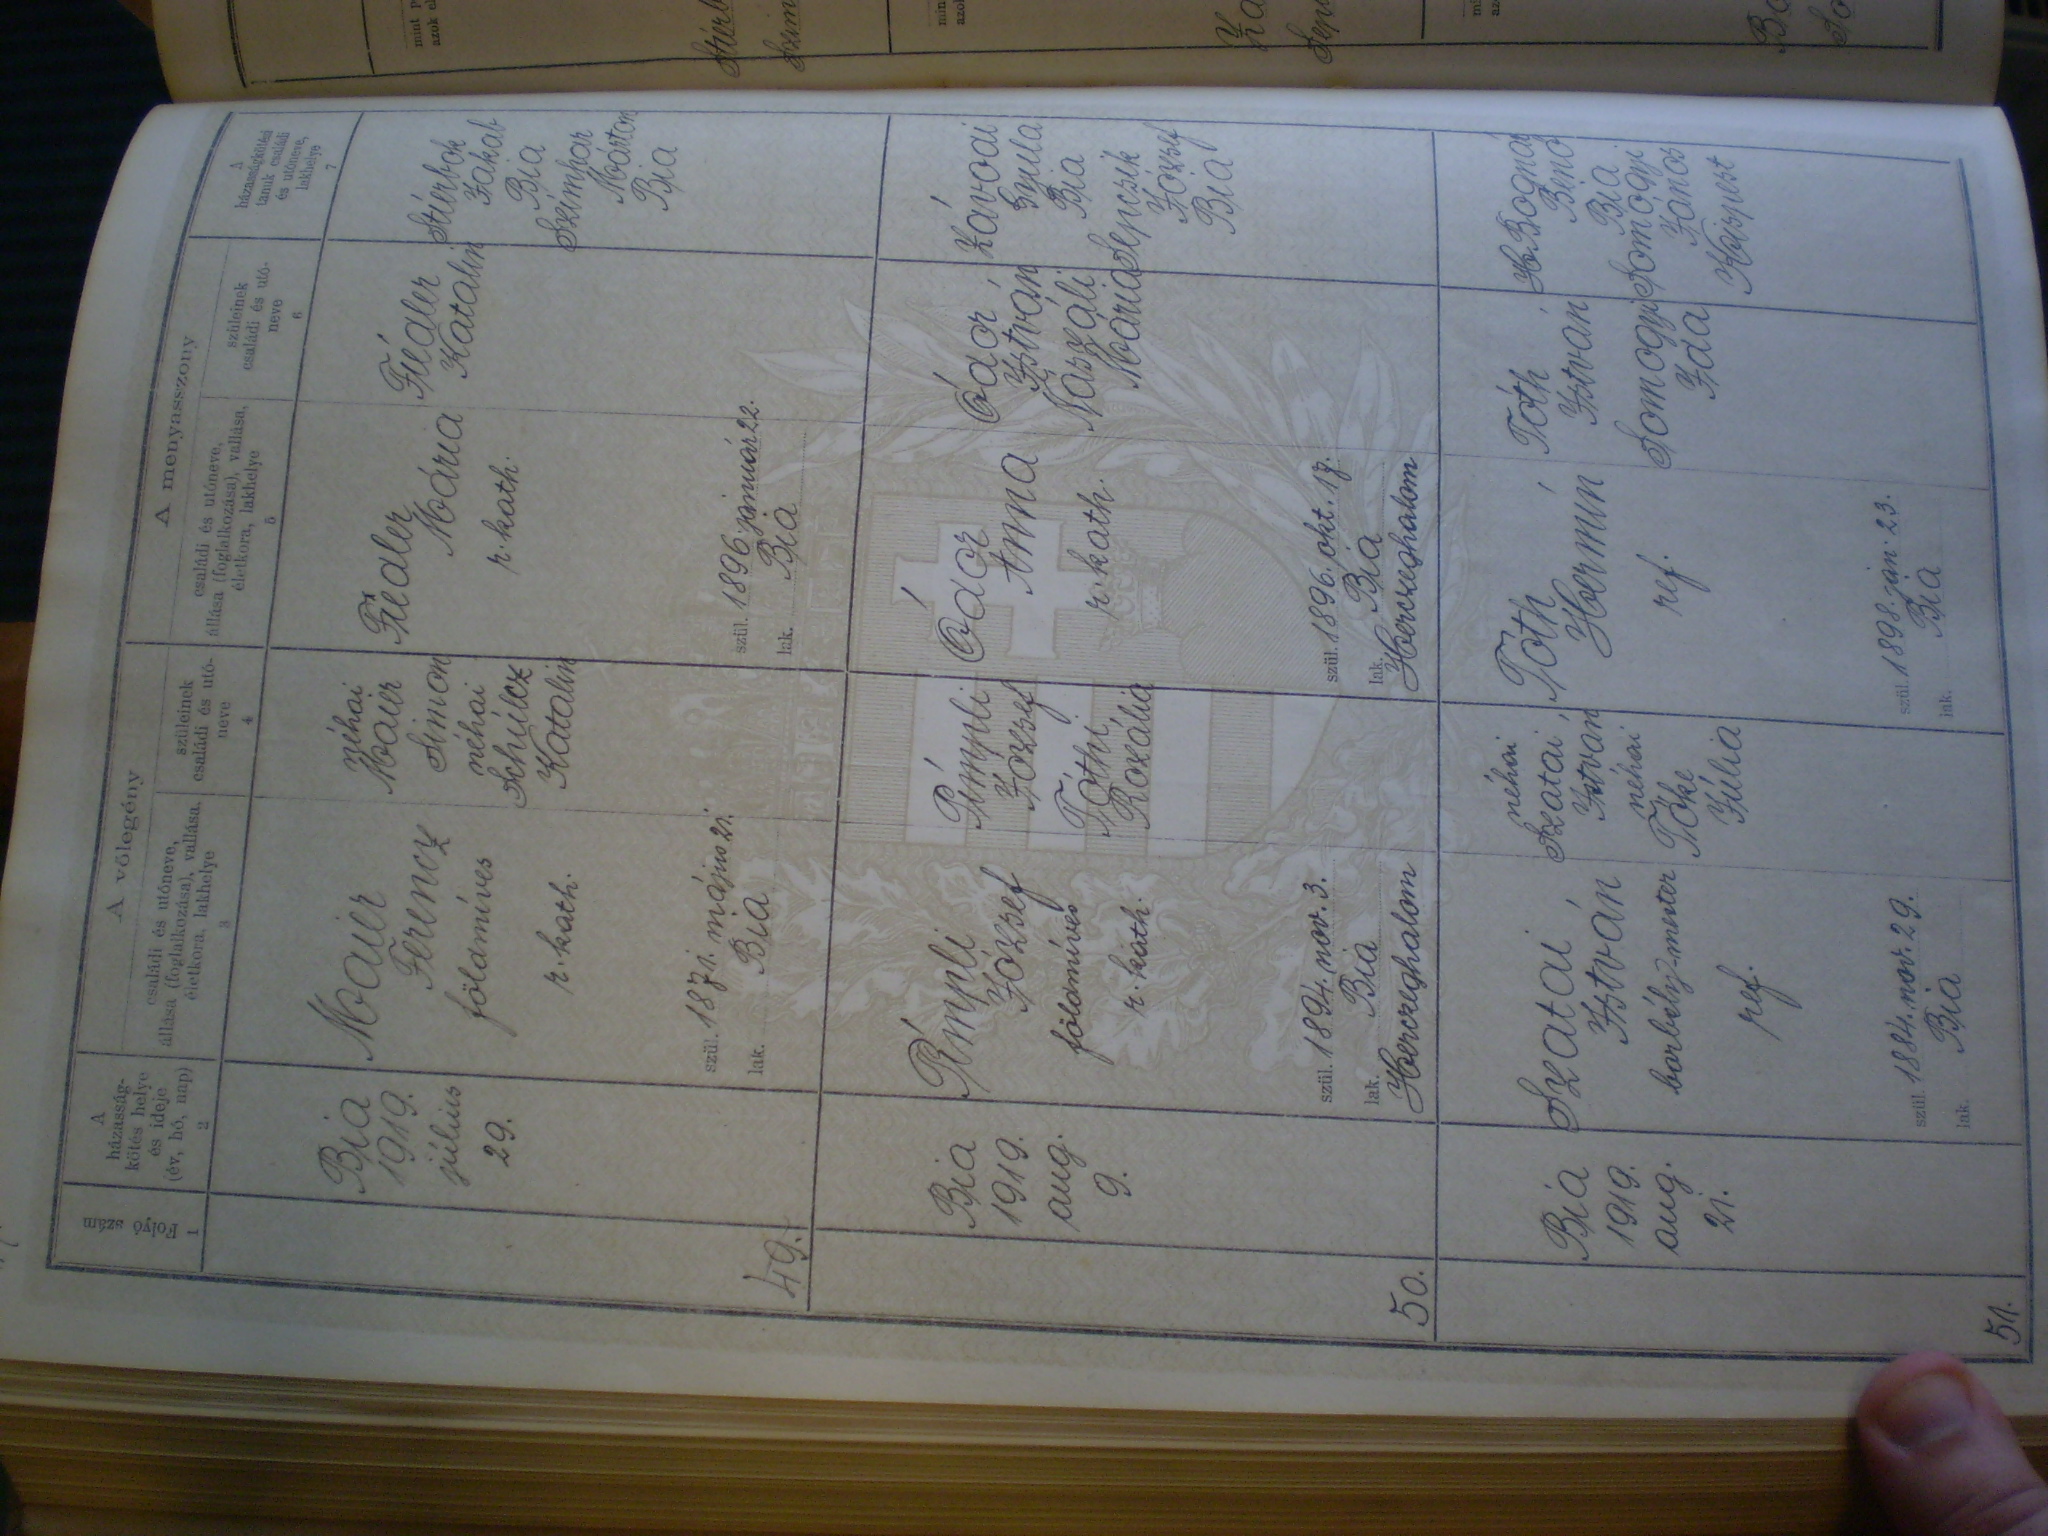 1
Folyó szám
2
A
házasság-
kötés helye
és ideje
(év, hó, nap)
A vőlegény
3
családi és utóneve,
állása (foglalkozása), vallása,
életkora, lakhelye
4
szüleinek
családi és utó-
neve
A menyasszony
5
családi és utóneve,
állása (foglalkozása), vallása,
életkora, lakhelye
6
szüleinek
családi és utó-
neve
A
házasságkötési
tanuk családi
és utóneve,
lakhelye
7
49.
Bia
1919.
július
29.
Maier
Ferencz
földmíves
r. kath.
szül. 1871. május 21.
lak. Bia
néhai
Maier
Simon
néhai
Schulcz
Katalin
Fiedler
Mária
r. kath.
szül. 1896. január 22.
lak. Bia
Fiedler
Katalin
Stierbok
Jakab
Bia
Márton
Bia
50.
Bia
1919.
aug.
9.
Pimpli
József
földmíves
r. kath.
szül. 1894. nov. 3.
Bia
lak.
Herczeghalom
Pimpli
József
Tóthi
Rozália
Gádor
Anna
r. kath.
szül. 1896. okt. 17.
Bia
lak.
Herczeghalom
Gádor
István
Naszáli
Mária
Závodi
Gyula
Bia
Sepcsik
József
Bia
51.
Bia
1919.
aug.
21.
Szatai
István
borbély-mester
ref.
szül. 1884. nov. 29.
lak. Bia
néhai
Szatai
István
néhai
Tőke
Júlia
Tóth
Hermin
ref.
szül. 1898. ján. 23.
lak. Bia
Tóth
István
Somogyi
Ida
H. Bognár
Benő
Bia
Somogyi
János
Kispest